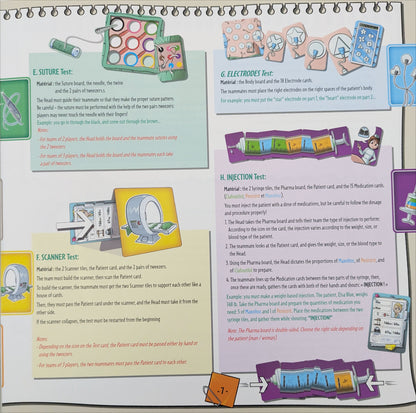 E. SUTURE Test:
Matérial : the Suture board, the needle, the twine
and the 2 pairs of tweezers.
The Head must guide their teammate so that they make the proper suture pattern.
Be careful – the suture must be performed with the help of the two pairs tweezers:
players may never touch the needle with their fingers!
Example: you go in through the black, and come out through the brown...
Notes:
- For teams of 2 players, the Head holds the board and the teammate sutures using
the 2 tweezers.
- For teams of 3 players, the Head holds the board and the teammates each take
a pair of tweezers.
F. SCANNER Test:
Matérial : the 2 Scanner tiles, the Patient card, and the 2 pairs of tweezers.
The team must build the scanner, then scan the Patient card.
To build the scanner, the teammate must get the two Scanner tiles to support each other like a
house of cards.
Then, they must pass the Patient card under the scanner, and the Head must take it from the
other side.
If the scanner collapses, the test must be restarted from the beginning
Notes:
- Depending on the icon on the Test card, the Patient card must be passed either by hand or
using the tweezers.
- For teams of 3 players, the two teammates must pass the Patient card to each other.
G. ELECTRODES Test:
Matérial : the Body board and the 18 Electrode cards.
The teammates must place the right electrodes on the right spaces of the patient's body.
For example: you must put the "star" electrode on part 1, the "heart" electrode on part 2...
H. INJECTION Test:
Matérial : the 2 Syringe tiles, the Pharma board, the Patient card, and the 15 Medication cards.
You must inject the patient with a dose of medication, but be careful to follow the dosage
and procedure properly!
1. The Head takes the board and tells their team the type of injection to perform.
According to the icon on the card, the injection varies according to the weight, size, or
blood type of the patient.
2. The teammate looks at the Patient card, and gives the weight, size, or the blood type to
the Head.
3. Using the Pharma board, the Head dictates the proportions of
to prepare.
4. The teammate lines up the Medication cards between the two parts of the syringe, then,
once these are ready, gathers the cards with both of their hands and shouts: « INJECTION! »
Example: you must make a weight-based injection. The patient, Elsa Blue, weighs
Take the Pharma board and prepare the quantities of medication you
Place the medications between the two
syringe tiles, and gather them while shouting: "INJECTION!"
Note: The Pharma board is double-sided. Choose the right side depending on
the patient (man / woman)
- 7 -